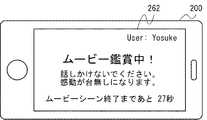 262
200
User: Yosuke
ムービー鑑賞中！
話しかけないでください。
感動が台無しになります。
ムービーシーン終了まであと 27秒